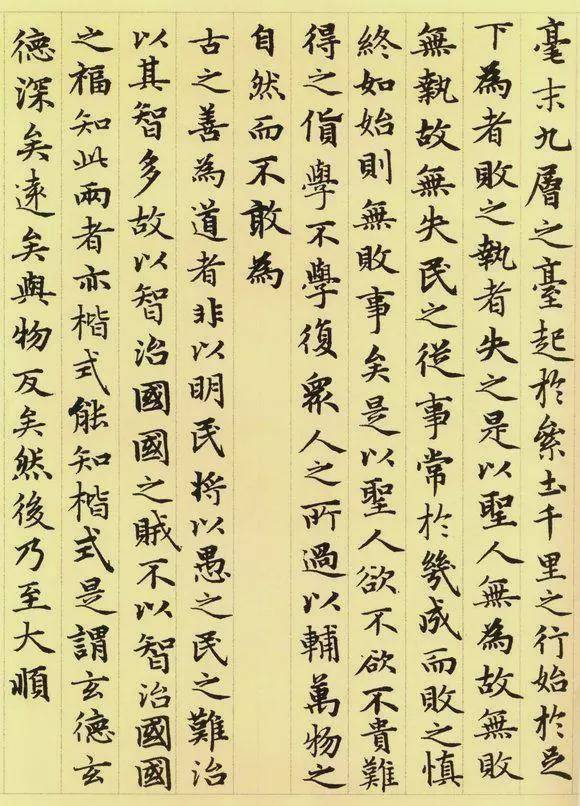 毫末九層之臺起於絫土千里之行始於足
下為者敗之執者失之是以聖人無為故無敗
無執故無失民之從事常於幾成而敗之慎
終如始則無敗事矣是以聖人欲不欲不貴難
得之貨學不學復眾人之所過以輔萬物之
自然而不敢為
古之善為道者非以明民將以愚之民之難治
以其智多故以智治國國之賊不以智治國國
之福知此兩者亦楷式能知楷式是謂玄德玄
德深矣遠矣與物反矣然後乃至大順